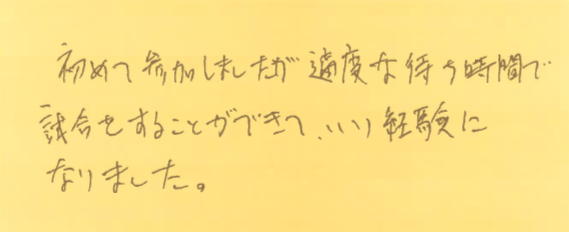 初めて参加しましたが適度な待ち時間で
試合をすることができて、いい経験に
なりました。